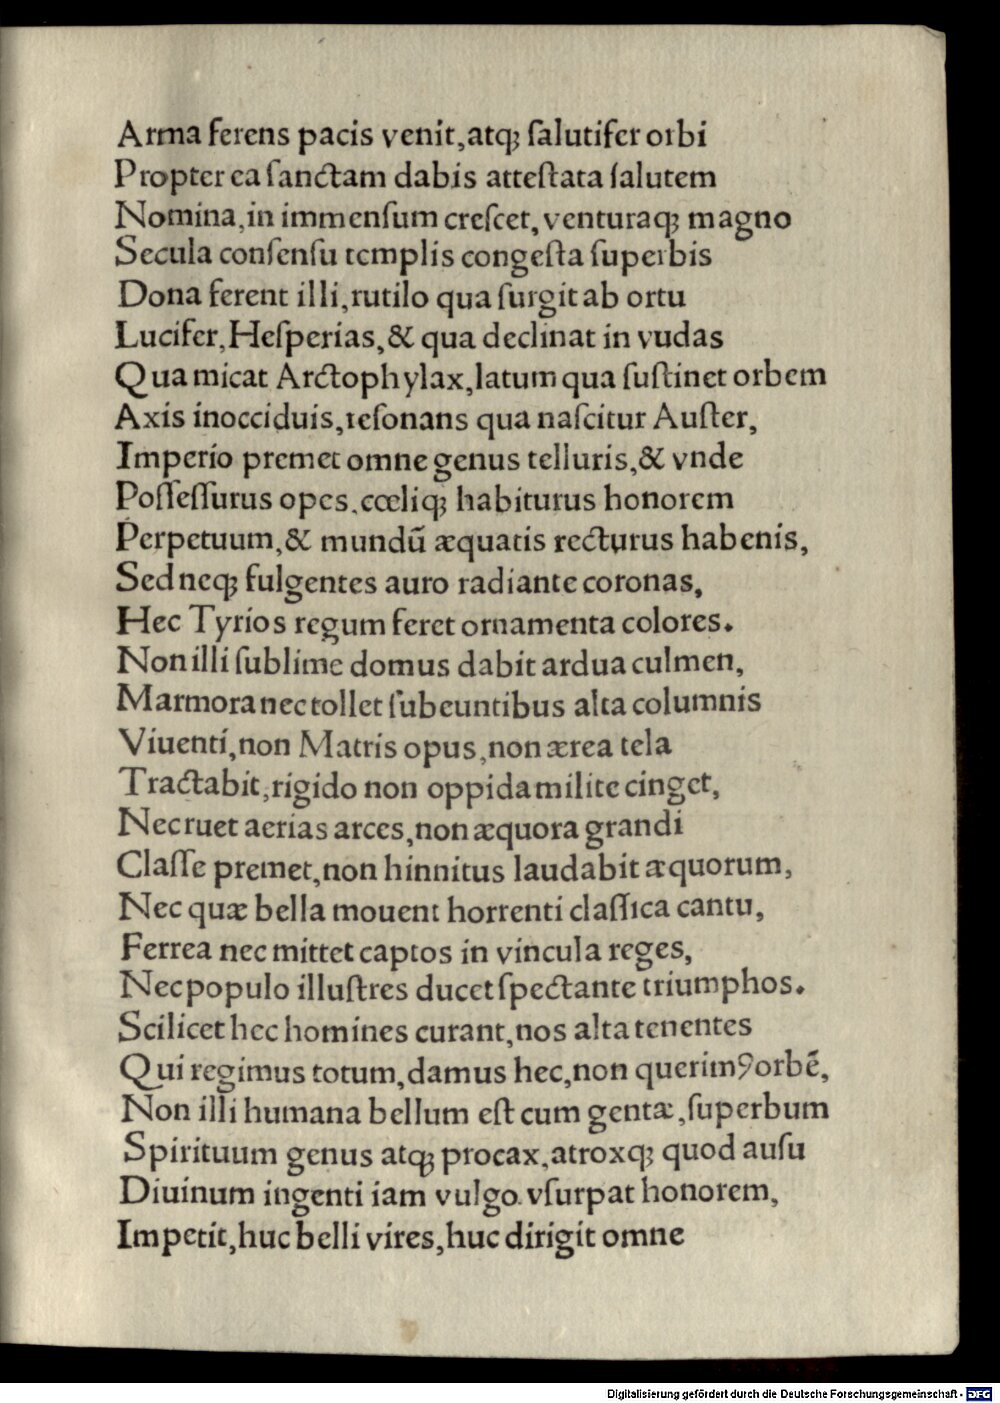 Arma ferens pacis venit,atqꝫ ſalutifer orbi
Propter ea ſanctam dabis atteſtata ſalutem
Nomina,in immenſum creſcet,venturaqꝫ magno
Secula conſenſu templis congeſta ſuperbis
Dona ferent illi,rutilo qua ſurgit ab ortu
Lucifer,Heſperias,& qua declinat in vudas
Qua micat Arctophylax,latum qua ſuſtinet orbem
Axis inocciduis,reſonans qua naſcitur Auſter,
Imperio premet omne genus telluris,& vnde
Poſſeſſurus opes.cœliqꝫ habiturus honorem
Perpetuum,& mundū æquatis recturus habenis,
Sed neqꝫ fulgentes auro radiante coronas,
Hec Tyrios regum feret ornamenta colores.
Non illi ſublime domus dabit ardua culmen,
Marmora nec tollet ſubeuntibus alta columnis
Viuenti,non Matris opus,non ærea tela
Tractabit,rigido non oppida milite cinget,
Nec ruet aerias arces,non æquora grandi
Claſſe premet,non hinnitus laudabit æquorum,
Nec quæ bella mouent horrenti claſſica cantu,
Ferrea nec mittet captos in vincula reges,
Nec populo illuſtres ducet ſpectante triumphos.
Scilicet hec homines curant,nos alta tenentes
Qui regimus totum,damus hec,non querimꝰ orbē,
Non illi humana bellum eſt cum gentæ,ſuperbum
Spirituum genus atqꝫ procax,atroxqꝫ quod auſu
Diuinum ingenti iam vulgo.vſurpat honorem,
Impetit,huc belli vires,huc dirigit omne
Digitalisierung gefördert durch die Deutsche Forschungsgemeinschaft - DFG